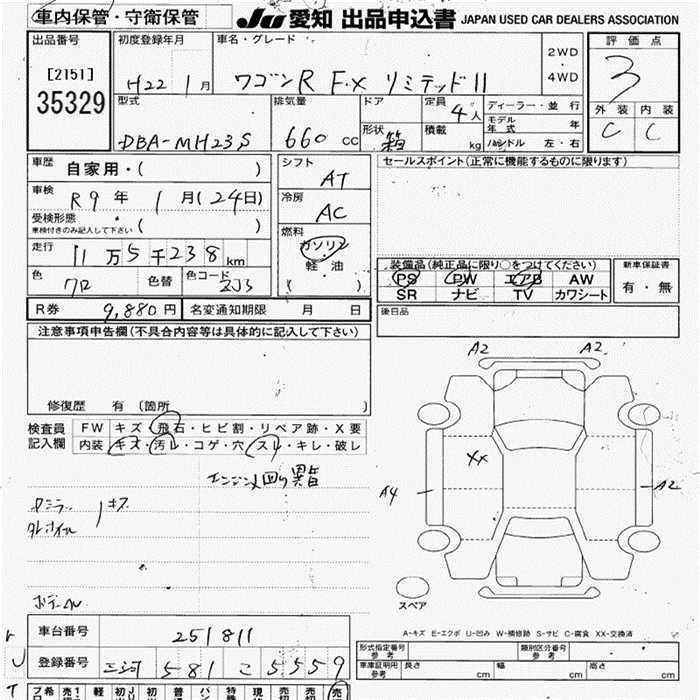 車内保管・守衛保管
JU 愛知 出品申込書 JAPAN USED CAR DEALERS ASSOCIATION
出品番号
[2151]
35329
初度登録年月
H22 1月
車名・グレード
ワゴンR F.X リミテッドII
2WD
・
4WD
評価点
3
外装 内装
C C
型式
DBA-MH23S
排気量
660 cc
ドア
形状 箱
定員 4人
積載 kg
ディーラー・並行
モデル年式 年
ハンドル 左・右
車歴 自家用・( )
車検 R9年 1月(24日)
受検形態
車検付きのみ記入して下さい ( )
走行 11万5千238km
色 クロ 色替 色コード ZJ3
シフト AT
冷房 AC
燃料
ガソリン
軽・油
( )
セールスポイント(正常に機能するものに限ります)
装備品(純正品に限り○をつけてください)
PS PW エアB AW
SR ナビ TV カワシート
新車保証書
有・無
R券 9,880円 名変通知期限 月 日
後日品
注意事項申告欄(不具合内容等は具体的に記入して下さい)
修復歴 有 (箇所
検査員記入欄
FW キズ・飛石・ヒビ割・リペア跡・X要
内装 キズ・汚レ・コゲ・穴・スレ・キレ・破レ
エンジン回り異音
キズ
A2 A2
XX
A4 A2
スペア
A-キズ E-エクボ U-凹み W-補修跡 S-サビ C-腐食 XX-交換済
車台番号 251811
登録番号 三河 581 こ 5559
形式指定番号 参考
類別区分番号 参考
車庫証明用 参考 長さ cm 幅 cm 高さ cm